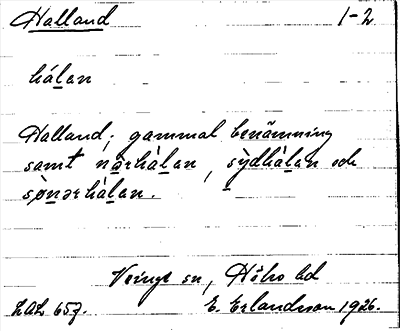 Halland 1-2
hálan
Halland; gammal benämning
samt nårhálan, sỳdhálan och
sønərhálan.
Veinge sn, Höks hd
LAL 657. E. Erlandsson 1926.